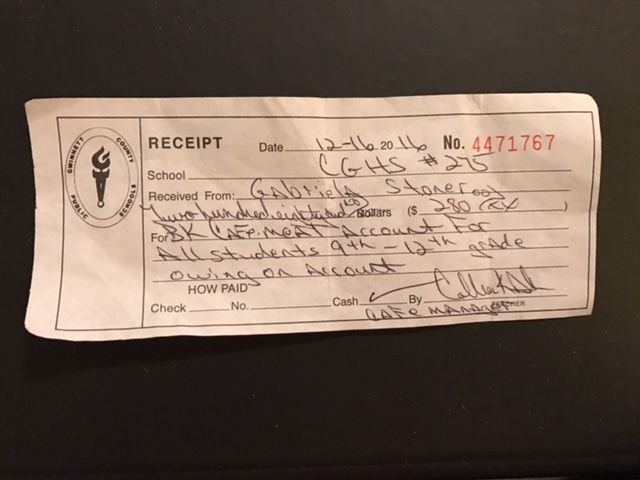 GWINNETT COUNTY PUBLIC SCHOOLS
RECEIPT Date 12-16 2016 No. 4471767
School CGHS #275
Received From: Gabriela Stoneroot
Two hundred eighty and Dollars ($ 280 )
For BK CAFE. MEAT Account For
All students 9th - 12th grade
owing on Account
HOW PAID
Check No. Cash ✓ By
TEACHER
CAFE MANAGER